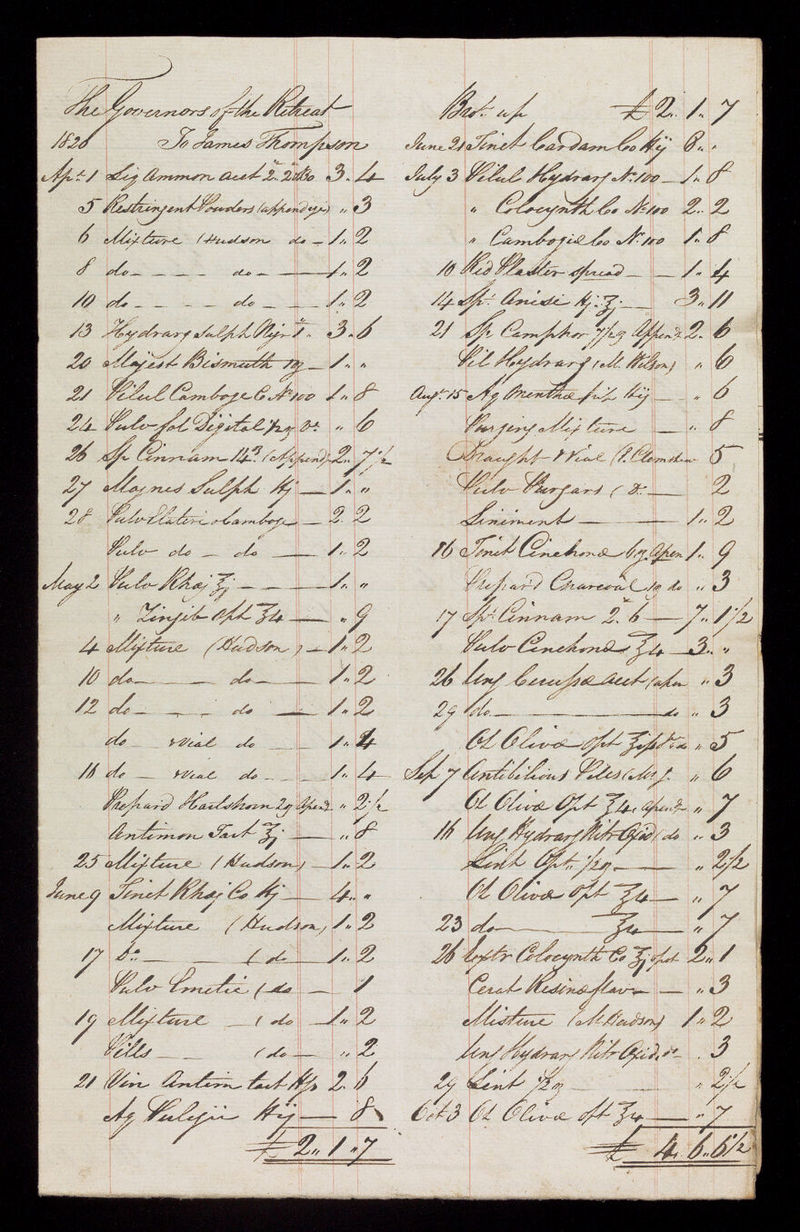 The Governors of the Retreat
1820 To James Thompson
Apr. 1 Liq Ammon acet 3 " 4
5 Restringent Powders (appendage) " 3
6 Mixture (Hudson do 1 " 2
8 do do 1 " 2
10 do do 1 " 2
13 Hydrarg Sulph Nigr 3 " 6
20 Majest Bismuth 1 " "
21 Pilul Camboge C No 100 1 " 8
24 Pulv fol Digital " 6
26 Sp Cinnam (Append 2 " 7 1/2
27 Magnes Sulph 1 " "
28 Pulv Elaterii & Camboge 2 2
Pulv do do 1 " 2
May 2 Pulv Rhæj ℥j 1 " "
" Zinjib opt ℥4 " 9
4 Mixture (Hudson) 1 " 2
10 do do 1 " 2
12 do do 1 " 2
do & Vial do 1 " 4
18 do & Vial do 1 " 4
Prepard Hartshorn Apend " 2 1/2
Antimon Tart ℥j " 8
25 Mixture (Hudson) 1 " 2
June 9 Tinct Rhæj Co 4 " "
Mixture (Hudson) 1 " 2
17 Do (do 1 " 2
Pulv Emetic (do 1
19 Mixture (do 1 " 2
Pills (do " 2
21 Vin Antim tart 2 " 6
Aq Pulegii 8
£ 2 " 1 " 7
Brot. up £ 2 " 1 " 7
June 21 Tinct Cardam Co 8 " "
July 3 Pilul Hydrarg No 100 1 " 8
" Colocynth Co No 100 2 " 2
" Cambogiæ Co No 100 1 " 8
10 Red Plaster spread 1 " 4
14 Spt Anisi 3 " 11
21 Sp Camphor Append 2 " 6
Pil Hydrarg (M. Wilson) " 6
Augt 15 Aq Menthæ pip " 6
Purging Mixture " 8
Draught & Vial 5
Pulv Purgans 2
Liniment 1 " 2
16 Tinct Cinchonæ Apen 1 " 9
Prepard Charcoal do " 3
17 Spt Cinnam 7 " 1 1/2
Pulv Cinchonæ ℥4 3 " "
26 Ung Cerussæ Acet (apen " 3
29 do do " 3
Ol Olivæ opt " 5
Sep 7 Antibilious Piles " 6
Ol Olivæ Opt ℥4 apend " 7
16 Ung Hydrarg Nitr Oxid (do " 3
Lint Opt " 2 1/2
Ol Olivæ opt ℥4 " 7
23 do ℥4 " 7
26 Extr Colocynth Co ℥j opt 2 " 1
Cerat Resinæ flav " 3
Mixture (M Hudson) 1 " 2
Ung Hydrarg Nitr Oxid " 3
29 Lint " 2 1/2
Oct 3 Ol Olivæ opt ℥4 " 7
£ 4 " 6 " 6 1/2